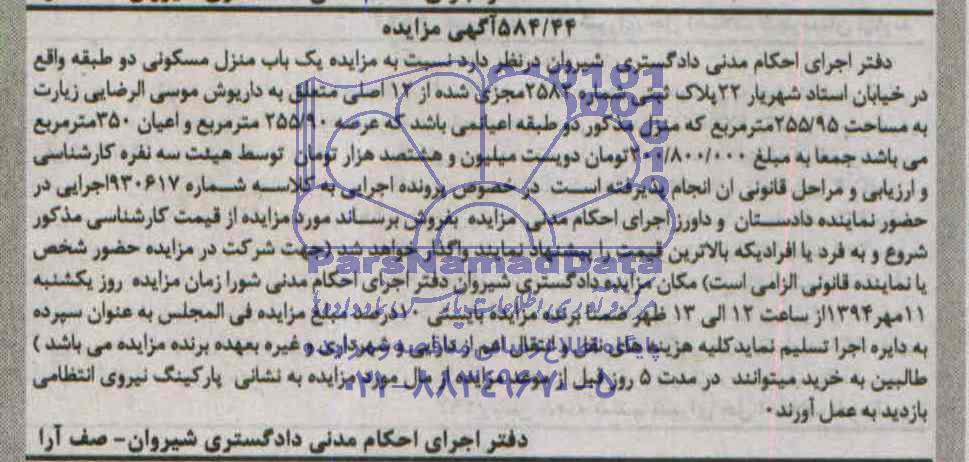 ۵۸۴/۴۴آگهی مزایده
دفتر اجرای احکام مدنی دادگستری شیروان درنظر دارد نسبت به مزایده یک باب منزل مسکونی دو طبقه واقع
در خیابان استاد شهریار ۲۲پلاک ثبتی شماره ۲۵۸۲مجزی شده از ۱۲ اصلی متعلق به داریوش موسی الرضایی زیارت
به مساحت ۲۵۵/۹۵مترمربع که منزل مذکور دو طبقه اعیانمی باشد که عرصه ۲۵۵/۹۰ مترمربع و اعیان ۳۵۰مترمربع
می باشد جمعا به مبلغ ۲۰۰/۸۰۰/۰۰۰تومان دویست میلیون و هشتصد هزار تومان توسط هیئت سه نفره کارشناسی
و ارزیابی و مراحل قانونی ان انجام پذیرفته است در خصوص پرونده اجرایی به کلاسه شماره ۹۳۰۶۱۷اجرایی در
حضور نماینده دادستان و داورز اجرای احکام مدنی مزایده بفروش برساند مورد مزایده از قیمت کارشناسی مذکور
شروع و به فرد یا افرادیکه بالاترین قیمت را پیشنهاد نمایند واگذار خواهد شد (جهت شرکت در مزایده حضور شخص
یا نماینده قانونی الزامی است) مکان مزایده دادگستری شیروان دفتر اجرای احکام مدنی شورا زمان مزایده روز یکشنبه
۱۱مهر۱۳۹۴از ساعت ۱۲ الی ۱۳ ظهر ضمنا برنده مزایده بایستی ۱۰درصد مبلغ مزایده فی المجلس به عنوان سپرده
به دایره اجرا تسلیم نماید کلیه هزینه های نقل و انتقال اعم از دارایی و شهرداری و غیره بعهده برنده مزایده می باشد )
طالبین به خرید میتوانند در مدت ۵ روز قبل از موعد مزایده از مال مورد مزایده به نشانی پارکینگ نیروی انتظامی
بازدید به عمل آورند.
دفتر اجرای احکام مدنی دادگستری شیروان- صف آرا
ParsNamadData
۰۲۱-۸۸۳۴۹۶۷۰-۵